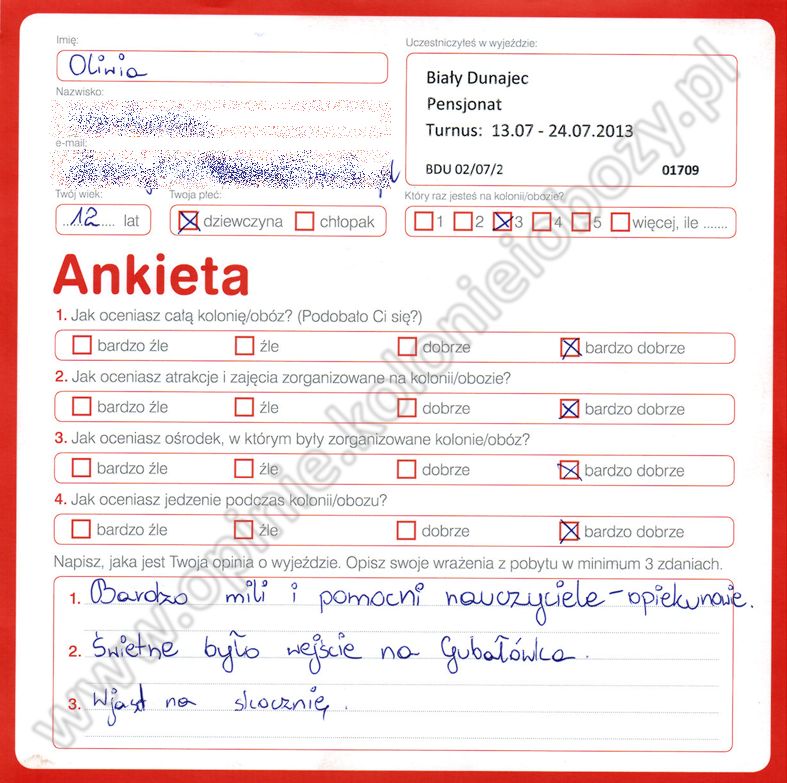 Imię:
Oliwia
Uczestniczyłeś w wyjeździe:
Biały Dunajec
Pensjonat
Turnus: 13.07 - 24.07.2013
BDU 02/07/2 01709
Nazwisko:
e-mail:
pl
Twój wiek:
12 lat
Twoja płeć:
dziewczyna chłopak
Który raz jesteś na kolonii/obozie?
1 2 3 4 5 więcej, ile .......
Ankieta
1. Jak oceniasz całą kolonię/obóz? (Podobało Ci się?)
bardzo źle źle dobrze bardzo dobrze
2. Jak oceniasz atrakcje i zajęcia zorganizowane na kolonii/obozie?
bardzo źle źle dobrze bardzo dobrze
3. Jak oceniasz ośrodek, w którym były zorganizowane kolonie/obóz?
bardzo źle źle dobrze bardzo dobrze
4. Jak oceniasz jedzenie podczas kolonii/obozu?
bardzo źle źle dobrze bardzo dobrze
Napisz, jaka jest Twoja opinia o wyjeździe. Opisz swoje wrażenia z pobytu w minimum 3 zdaniach.
1. Bardzo mili i pomocni nauczyciele-opiekunowie.
2. Świetne było wejście na Gubałówka.
3. Wjazt na skocznię.
www.opinie.kolonieiobozy.pl